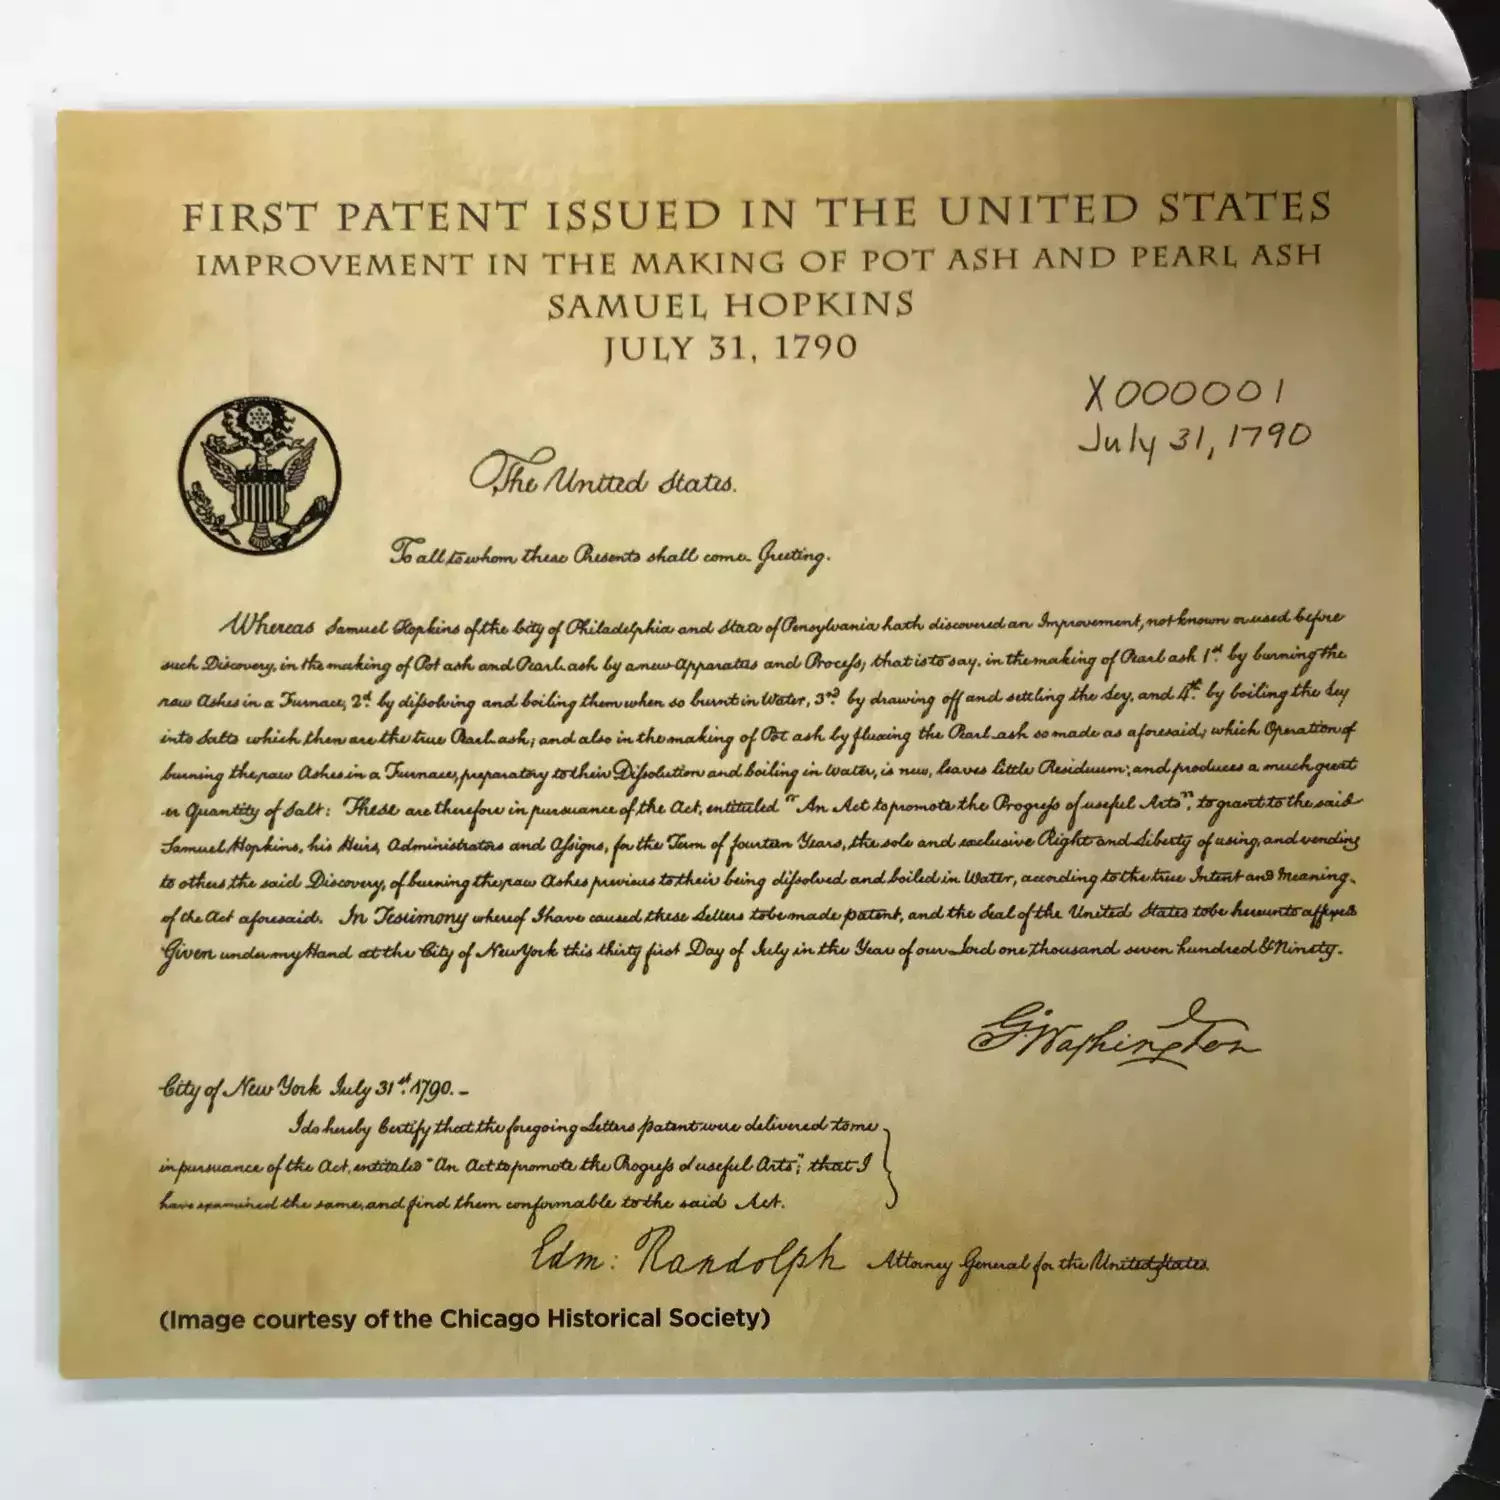 FIRST PATENT ISSUED IN THE UNITED STATES
IMPROVEMENT IN THE MAKING OF POT ASH AND PEARL ASH
SAMUEL HOPKINS
JULY 31, 1790
X000001
July 31, 1790
The United States.
To all to whom these Presents shall come. Greeting.
Whereas Samuel Hopkins of the City of Philadelphia and State of Pensylvania hath discovered an Improvement, not known or used before
such Discovery, in the making of Pot ash and Pearl ash by a new Apparatus and Process; that is to say, in the making of Pearl ash 1st. by burning the
raw Ashes in a Furnace, 2d. by dissolving and boiling them when so burnt in Water, 3rd. by drawing off and settling the Ley, and 4th. by boiling the Ley
into Salts which then are the true Pearl ash; and also in the making of Pot ash by fluxing the Pearl ash so made as aforesaid; which Operation of
burning the raw Ashes in a Furnace, preparatory to their Dissolution and boiling in Water, is new, leaves little Residuum; and produces a much great
er Quantity of Salt: These are therefore in pursuance of the Act, entituled "An Act to promote the Progress of useful Arts", to grant to the said
Samuel Hopkins, his Heirs, Administrators and Assigns, for the Term of fourteen Years, the sole and exclusive Right and Liberty of using, and vending
to others the said Discovery, of burning the raw Ashes previous to their being dissolved and boiled in Water, according to the true Intent and Meaning
of the Act aforesaid. In Testimony whereof I have caused these Letters to be made patent, and the Seal of the United States to be hereunto affixed
Given under my Hand at the City of New York this thirty first Day of July in the Year of our Lord one thousand seven hundred & Ninety.
G. Washington
City of New York July 31st. 1790. –
I do hereby Certify that the foregoing Letters patent were delivered to me
in pursuance of the Act, entituled "An Act to promote the Progress of useful Arts"; that I
have examined the same, and find them conformable to the said Act.
Edm: Randolph Attorney General for the United States.
(Image courtesy of the Chicago Historical Society)